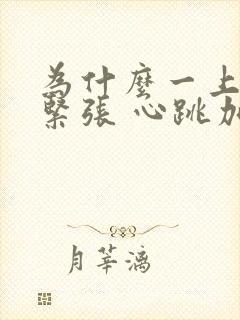 為什麼一上
緊張 心跳加
月莘漓